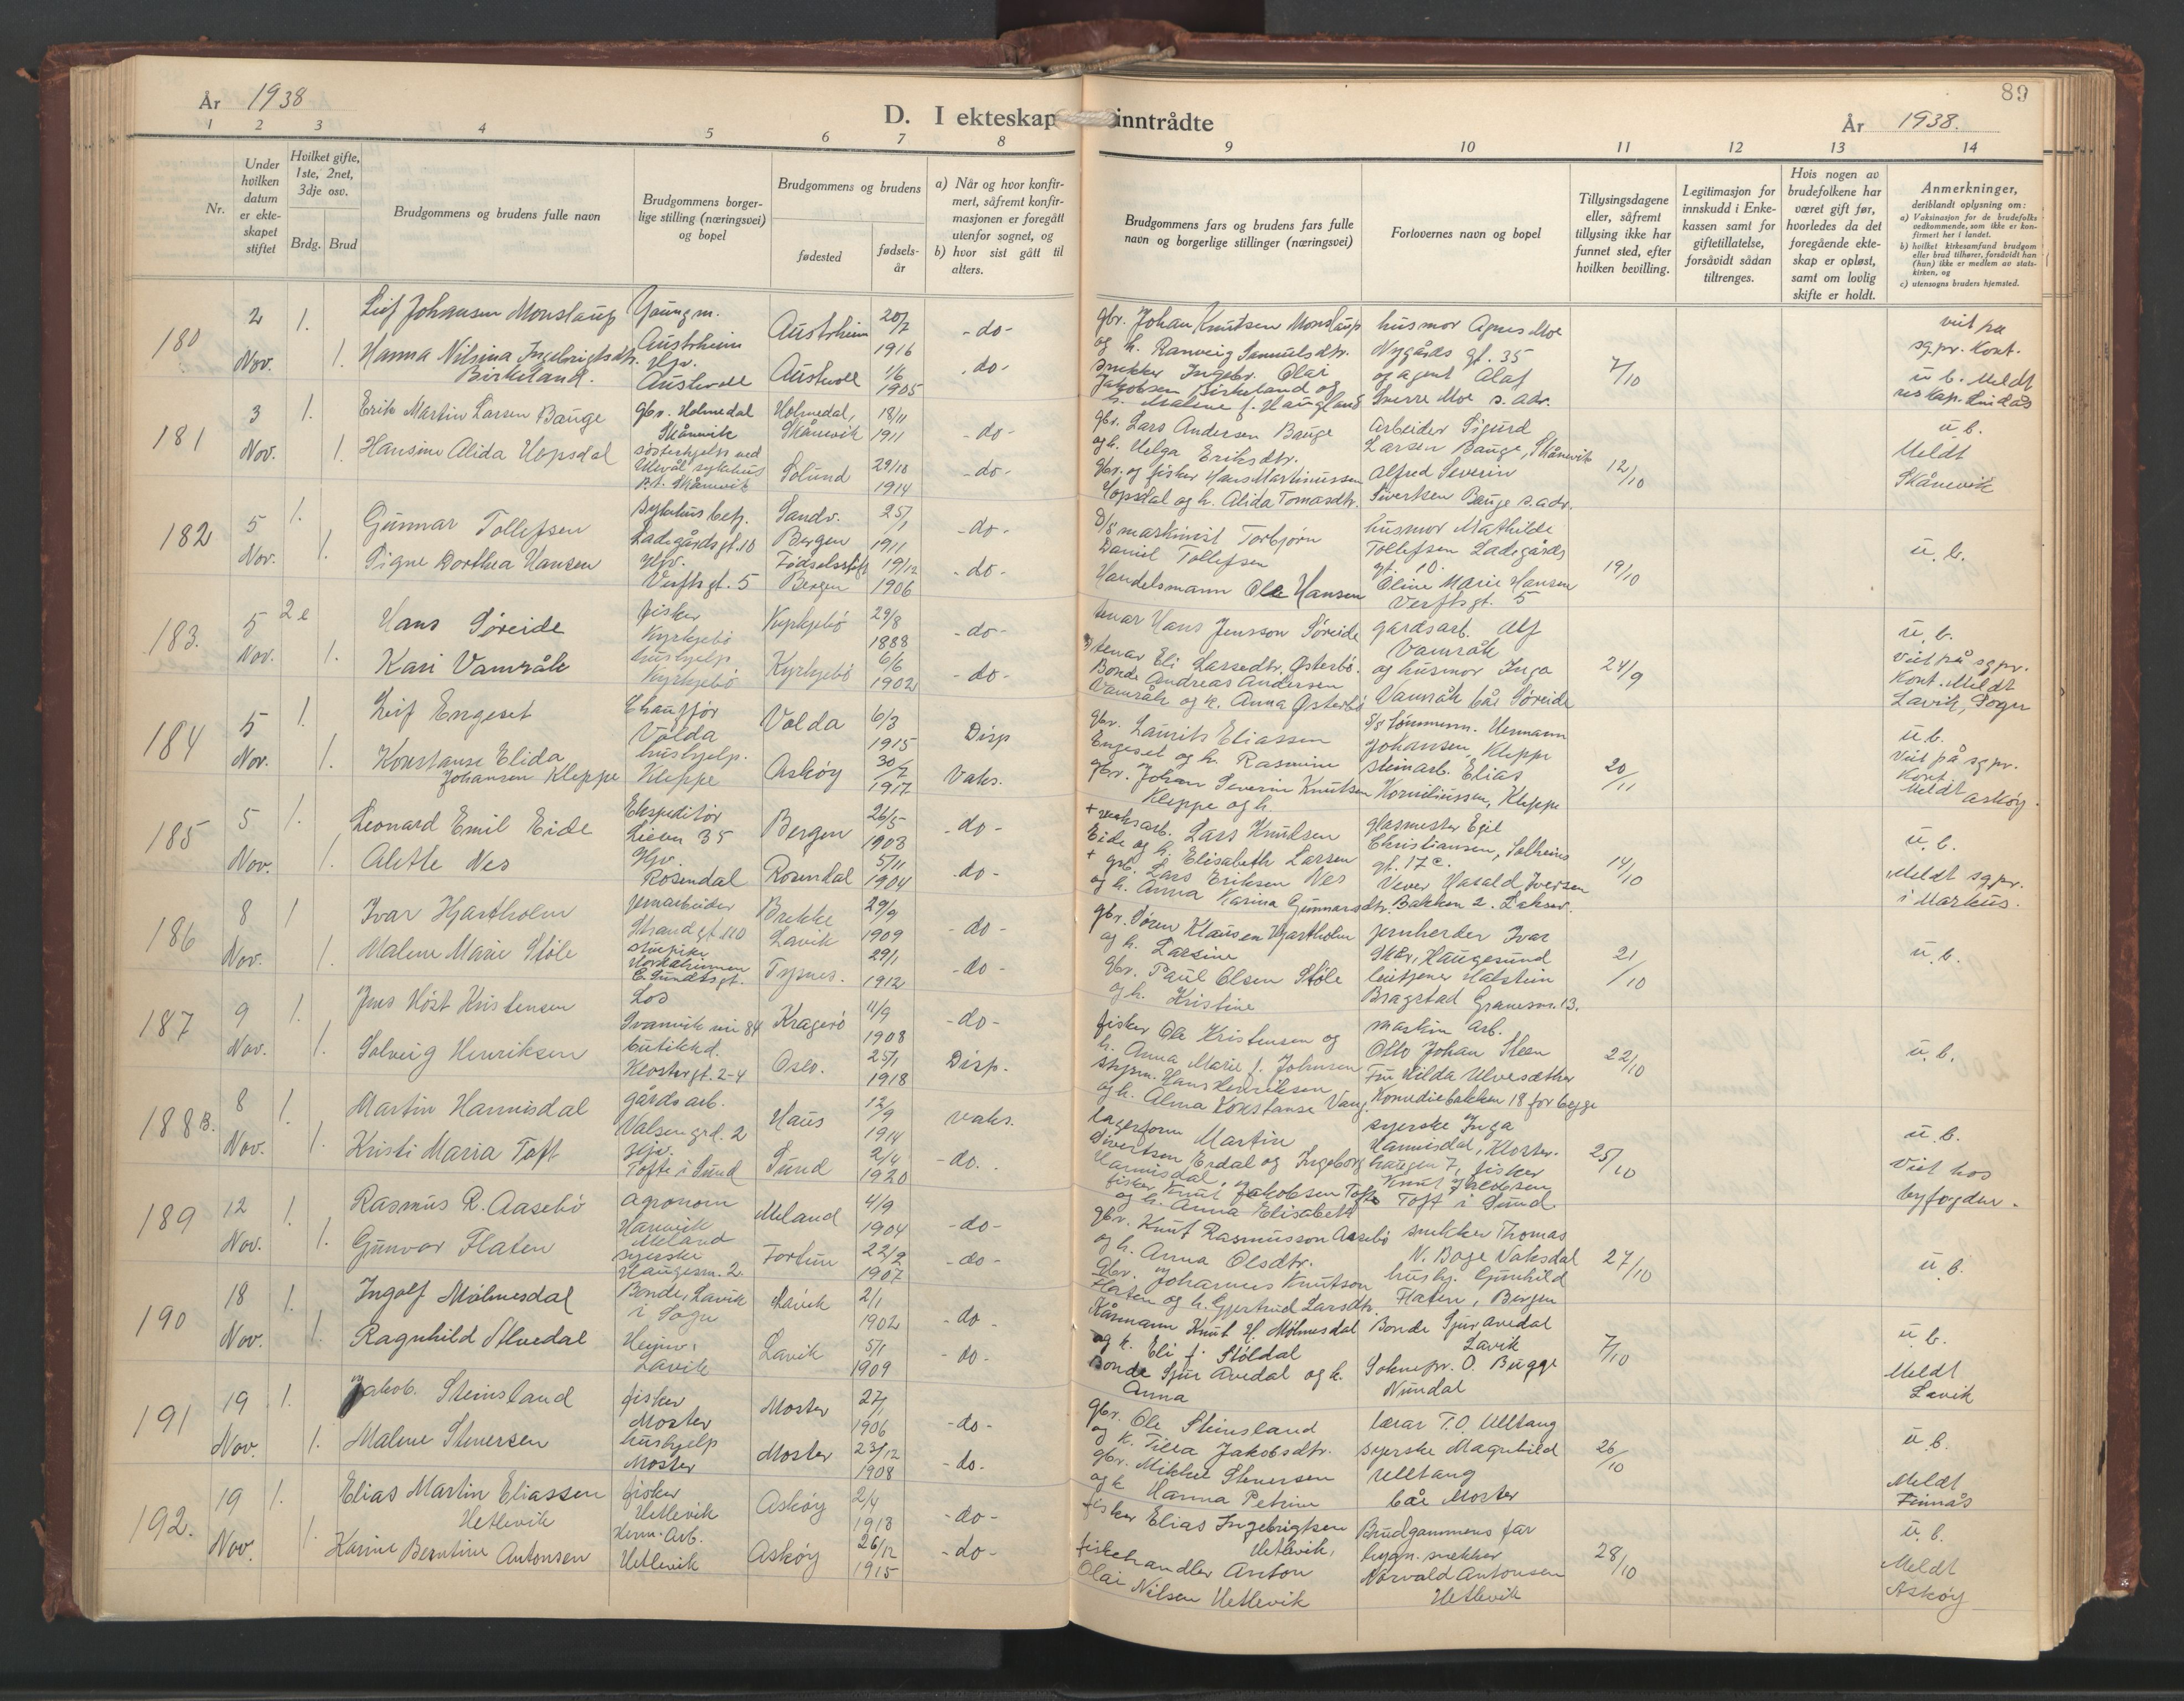 År 1938
D. I ekteskap inntrådte
År 1938.
89
1 2 3 4 5 6 7 8 9 10 11 12 13 14
Nr.
Under hvilken datum er ekteskapet stiftet
Hvilket gifte, 1ste, 2net, 3dje osv.
Brdg. Brud
Brudgommens og brudens fulle navn
Brudgommens borgerlige stilling (næringsvei) og bopel
Brudgommens og brudens
fødested
fødselsår
a) Når og hvor konfirmert, såfremt konfirmasjonen er foregått utenfor sognet, og
b) hvor sist gått til alters.
Brudgommens fars og brudens fars fulle navn og borgerlige stillinger (næringsvei)
Forlovernes navn og bopel
Tillysingsdagene eller, såfremt tillysing ikke har funnet sted, efter hvilken bevilling.
Legitimasjon for innskudd i Enkekassen samt for giftetillatelse, forsåvidt sådan tiltrenges.
Hvis nogen av brudefolkene har været gift før, hvorledes da det foregående ekteskap er opløst, samt om lovlig skifte er holdt.
Anmerkninger, deriblandt oplysning om:
a) Vaksinasjon for de brudefolks vedkommende, som ikke er konfirmert her i landet.
b) hvilket kirkesamfund brudgom eller brud tilhører, forsåvidt han (hun) ikke er medlem av statskirken, og
c) utensogns bruders hjemsted.
180
2 Nov.
1.
Leif Johansen Monslaup
Austrheim
Austrheim
20/7 1916
-do-
gbr. Johan Knutsen Monslaup
og h. Ranveig Samuelsdtr.
husmor Agnes Moe
Nygårds gt. 35
1.
Hanna Nilsina Ingebrigtsdtr. Birkeland.
Hjv.
Austevoll
Austevoll
1/6 1905
-do-
snekker Ingebr. Olai
Jakobsen Birkeland og
h. Malene f. Haugland
og agent Olaf
Sverre Moe s. adr.
7/10
viet på
sg.pr. Kont.
u. b. Meldt
res. kap. Lindås
181
3 Nov.
1.
Erik Martin Larsen Bauge
gbr. Holmedal
Skånevik
Holmedal,
Skånevik
18/11 1911
-do-
gbr. Lars Andersen Bauge
og h. Helga Eriksdtr.
Arbeider Sigurd
Larsen Bauge, Skånevik
1.
Hansine Alida Hopsdal
søsterhjelp ved
Ulvål sykehus
p.t. Skånevik
Solund
29/10 1914
-do-
gbr. og fisker Hans Martinussen
Hopsdal og h. Alida Tomasdtr.
Alfred Severin
Sivertsen Bauge s. adr.
12/10
u. b.
Meldt
Skånevik
182
5 Nov.
1.
Gunnar Tollefsen
Sykehus betj.
Ladegårdsgt. 10
Sandv.
Bergen
25/1 1911
-do-
D/s maskinist Torbjørn
Daniel Tollefsen
husmor Mathilde
Tollefsen Ladegårds
gt. 10.
1.
Signe Dorthea Hansen
Hjv.
Verftsgt. 5
Fødselsstift
Bergen
19/12 1906
-do-
Handelsmann Ole Hansen
Oline Marie Hansen
Verftsgt. 5
19/10
u. b.
183.
5 Nov.
2e
Hans Søreide
fisker
Kyrkjebø
Kyrkjebø
29/8 1888
-do-
tenar Hans Jensson Søreide
tenar Eli Lassedtr. Østerbø.
gardsarb. Alf
Vamråk
1.
Kari Vamråk
hushjelp
Kyrkjebø
Kyrkjebø
6/6 1902
-do-
Bonde Andreas Andersen
Vamråk og k. Anna Østerbø
og husmor Inga
Vamråk båe Søreide
24/9
u. b.
Viet på sgpr.
Kont. Meldt
Lavik, Sogn
184
5 Nov.
1.
Leif Engeset
Chauffør
Volda
Volda
6/3 1915
Disp
gbr. Laurits Eliassen
Engeset og h. Rasmine
Johansen, Kleppe
1.
Konstanse Elida
Johansen Kleppe
hushjelp.
Kleppe
Askøy
30/7 1917
Vaks.
gbr. Johan Severin Knutsen
Kleppe og h.
steinarb. Elias
Korneliussen, Kleppe
20/11
u. b.
Viet på sgpr.
Kont.
Meldt Askøy.
185
5 Nov.
1.
Leonard Emil Eide
Ekspeditør
Lien 35
Bergen
26/5 1903
-do-
+ verksarb. Lars Knudsen
Eide og h. Elisabeth Larsen
glasmester Egil
Christiansen, Solheims
gt. 17c.
1.
Alette Nes
Hjv.
Rosendal
Rosendal
5/11 1904
-do-
+ gbr. Lars Eriksen Nes
og h. Anna Karina Gunnarsdtr.
Vever Harald Iversen
Bakken 2. Laksev.
14/10
u. b.
Meldt sgpr.
i Markus.
186
8 Nov.
1
Ivar Hjartholm
jernarbeider
Strandgt. 110
Brekke
Lavik
29/9 1909
-do-
gbr. Søren Klausen Hjartholm
og h. Larsine
jernherder Ivar
Skår, Haugesund
1.
Malene Marie Støle
stuepike
Hordaheimen
C. Sundtsgt.
Tysnes.
29/1 1912
-do-
gbr. Paul Olsen Støle
og h. Kristine
Bragstad Granesm. 13.
21/10
u. b.
187
9 Nov.
1.
Jens Høst Kristensen
Los
Svanevik vei 84
Kragerø
11/9 1908
-do-
fisker Ole Kristensen og
h. Anna Marie f. Johnsen
maskin arb.
Otto Johan Steen
1.
Solveig Henriksen
butikkd.
Klostergt. 2-4
Oslo.
25/1 1918
Disp.
styrm. Hans Henriksen
og h. Alma Konstanse Vang.
Fru Hilda Ulvesæther
Komediebakken 18 for begge
22/10
u. b.
188 B.
8 Nov.
1.
Martin Hannisdal
gårdsarb.
Valsengrd. 2
Haus
12/9 1914
vaks.
lagerform Martin
Sivertsen Erdal og Ingeborg
Hannisdal,
syerske Inga
Hannisdal, Kloster-
haugen 7, fisker
1.
Kristi Maria Toft
Hjv.
Tofte i Sund
Sund
2/4 1920
-do-.
fisker Knut Jakobsen Tofte
og h. Anna Elisabeth
Knut Jacobsen
Toft i Sund
25/10
u. b.
Viet hos
byfogden.
189
12 Nov.
1.
Rasmus R. Aasebø
agronom
Hanevik
Meland
Meland
4/9 1904
-do-
gbr. Knut Rasmusson Aasebø
og h. Anna Olsdtr.
snekker Thomas
N. Boge Vaksdal
1.
Gunvor Flaten
syerske
Haugesm. 2.
Fortun
22/2 1907
-do-
gbr. Johannes Knutson
Flaten og h. Gjertrud Larsdtr.
hushj. Gunhild
Flaten, Bergen
27/10
u. b.
190
18 Nov.
1.
Ingolf Mølmesdal
Bonde, Lavik
i Sogn
Lavik
2/1 1902
-do-
Kårmann Knut H. Mølmesdal
og k. Eli f. Støldal
Bonde Sjur Avedal
Lavik
1.
Ragnhild Avedal
Heimv.
Lavik
Lavik
5/1 1909
-do-
Bonde Sjur Avedal og k.
Anna
Soknepr. O. Bugge
Nundal
7/10
u. b.
Meldt
Lavik
191
19 Nov.
1.
Jakob Steinsland
fisker
Moster
Moster
27/1 1906
-do-
gbr. Ole Steinsland
og k. Tilla Jakobsdtr.
lærar T.O. Ulltang
1.
Malene Stenersen
hushjelp
Moster
Moster
23/12 1908
-do-
gbr. Mikkel Stenersen
og k Hanna Petrine
syerske Magnhild
Ulltang
båe Moster
26/10
u. b.
Meldt
Finnås
192.
19 Nov.
1.
Elias Martin Eliassen
Hetlevik
fisker
Hetlevik
Askøy
2/4 1913
-do-
fisker Elias Ingebrigtsen
Hetlevik,
Brudgommens far
1.
Karine Berntine Antonsen
Herm. Arb.
Hetlevik
Askøy
26/12 1915
-do-
fiskehandler Anton
Olai Nilsen Hetlevik
bygn. snekker
Norvald Antonsen
Hetlevik
28/10
u. b.
Meldt
Askøy